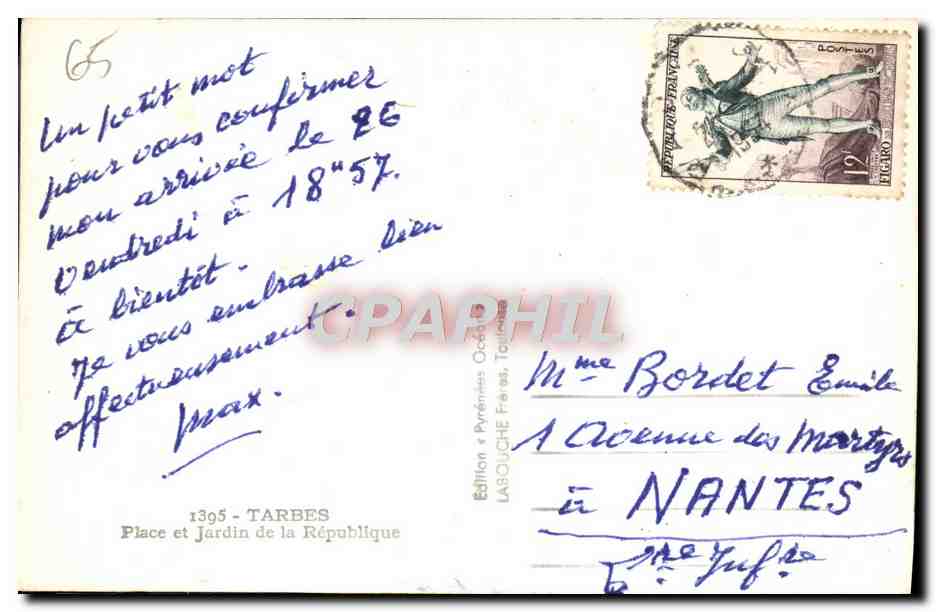 65
Un petit mot
pour vous confirmer
mon arrivée le 26
vendredi à 18 H 57.
à bientôt.
Je vous embrasse bien
affectueusement.
Max.
1395 - TARBES
Place et Jardin de la République
Edition « Pyrénées Océan »
LABOUCHE Frères, Toulouse
CPAPHIL
RÉPUBLIQUE FRANÇAISE
POSTES
12F
FIGARO
Mme Bordet Emile
1 Avenue des Martyrs
à NANTES
Infre